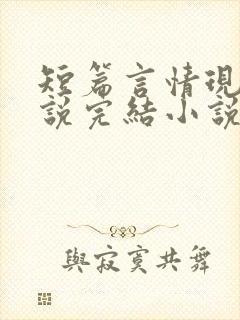 短篇言情現
說完結小說
與寂寞共舞